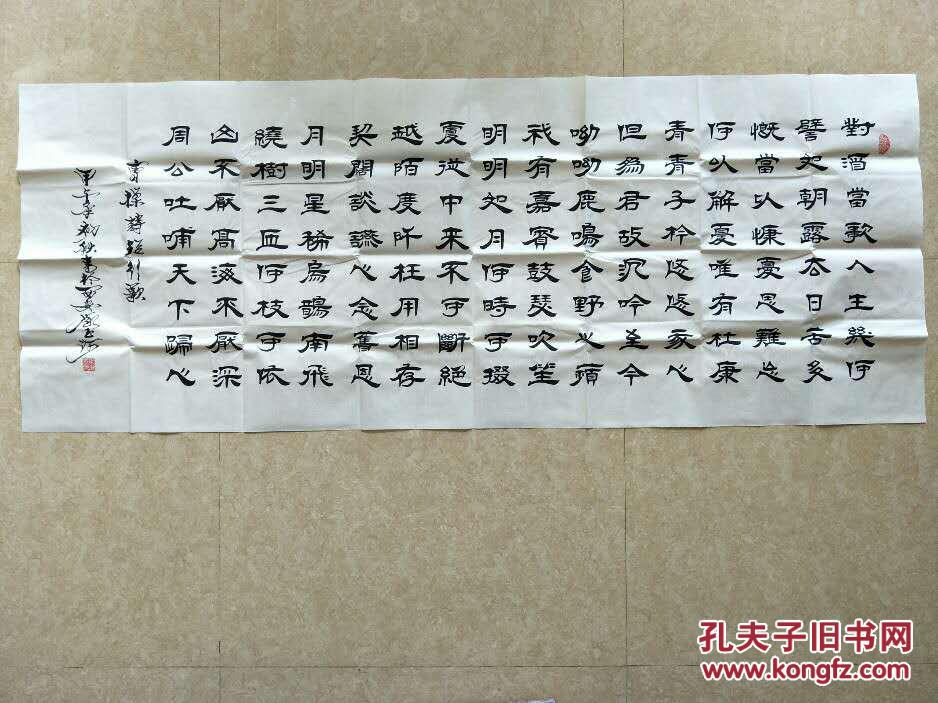 對酒當歌人生幾何
譬如朝露去日苦多
慨當以慷憂思難忘
何以解憂唯有杜康
青青子衿悠悠我心
但爲君故沉吟至今
呦呦鹿鳴食野之蘋
我有嘉賓鼓瑟吹笙
明明如月何時可掇
憂從中來不可斷絕
越陌度阡枉用相存
契闊談讌心念舊恩
月明星稀烏鵲南飛
繞樹三匝何枝可依
山不厭高海不厭深
周公吐哺天下歸心
曹操詩短行歌
甲午年初秋書於西安
孔夫子旧书网
www.kongfz.com